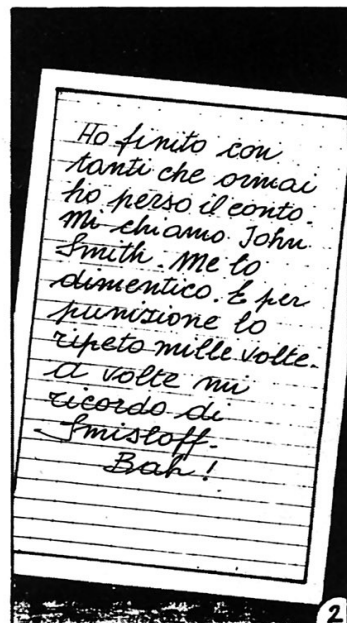 Ho finito con
tanti che ormai
ho perso il conto.
Mi chiamo John
Smith. Me lo
dimentico. E per
punizione lo
ripeto mille volte.
A volte mi
ricordo di
Smisloff.
Bah!
2